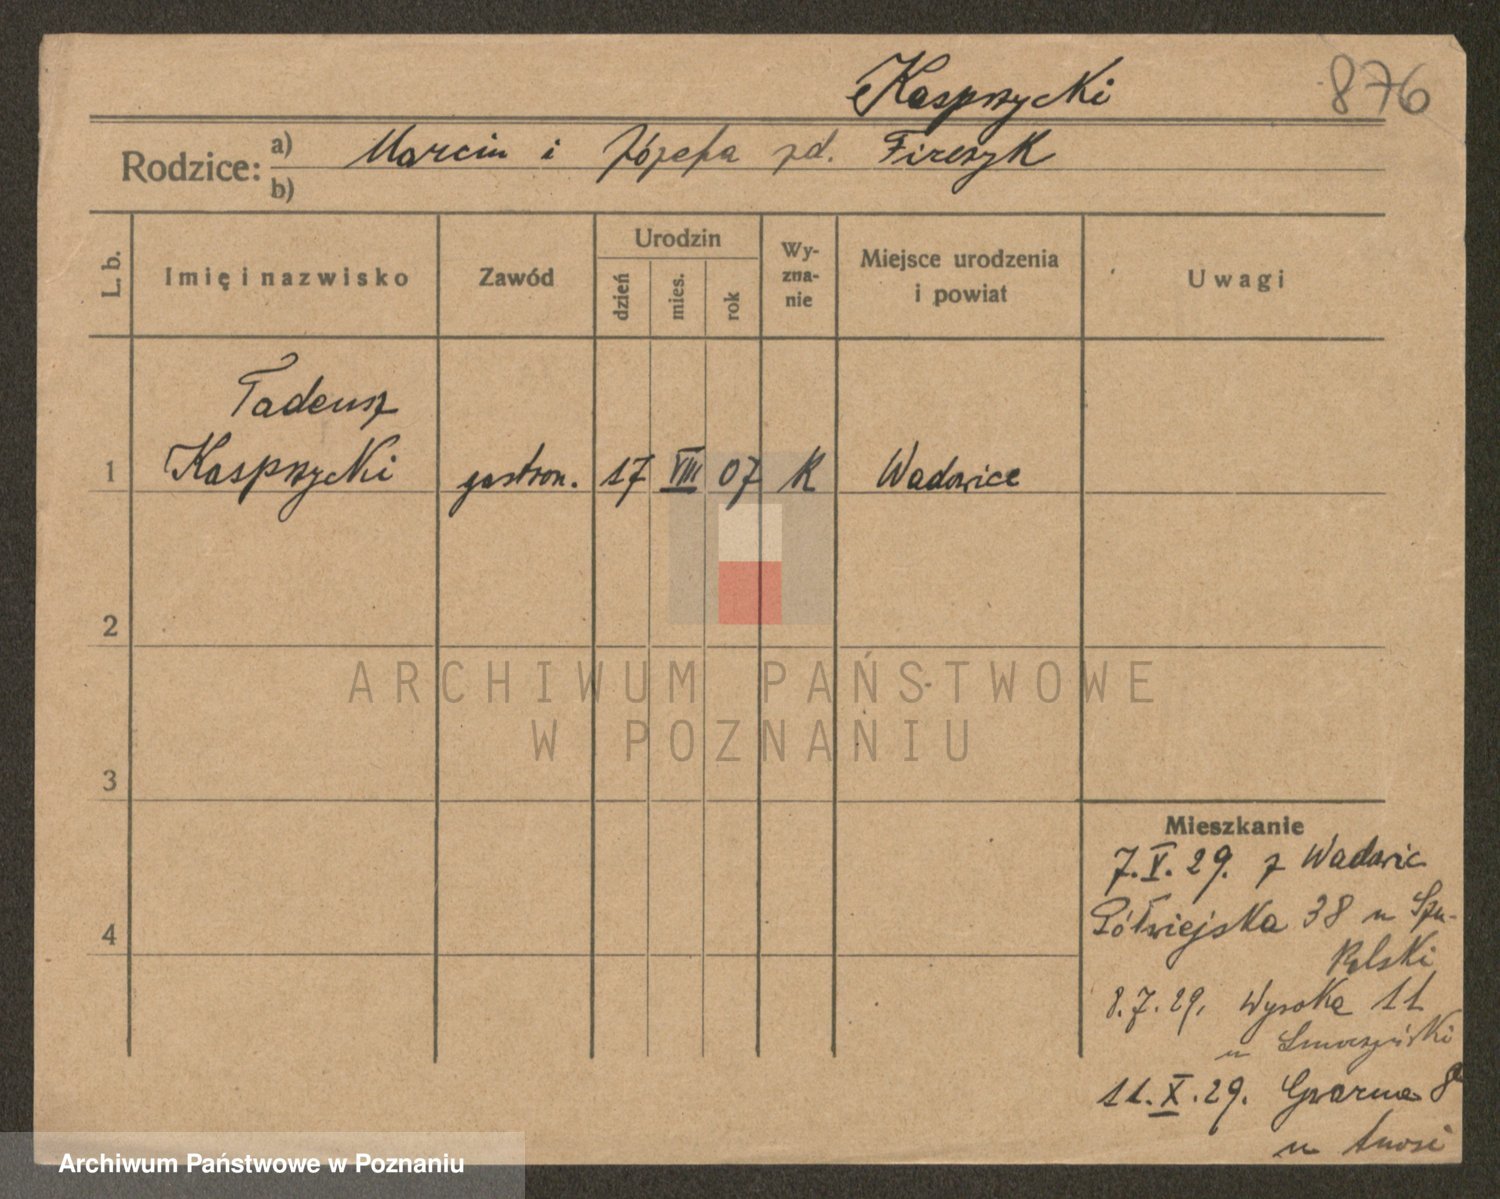 Kasprzycki
876
Rodzice: a) Marcin i Józefa zd.
b)
L. b.
Imię i nazwisko
Zawód
Urodzin
dzień
mies.
rok
Wy-
zna-
nie
Miejsce urodzenia
i powiat
Uwagi
Tadeusz
1 Kasprzycki gastron. 17 VIII 07 K Wadowice
2
3
4
ARCHIWUM PAŃSTWOWE
W POZNANIU
Mieszkanie
7.V.29. z Wadowic
Półwiejska 38 u Szu-
8.7.29. Wysoka 11
u
11.X.29. Gwarna 8
u
Archiwum Państwowe w Poznaniu